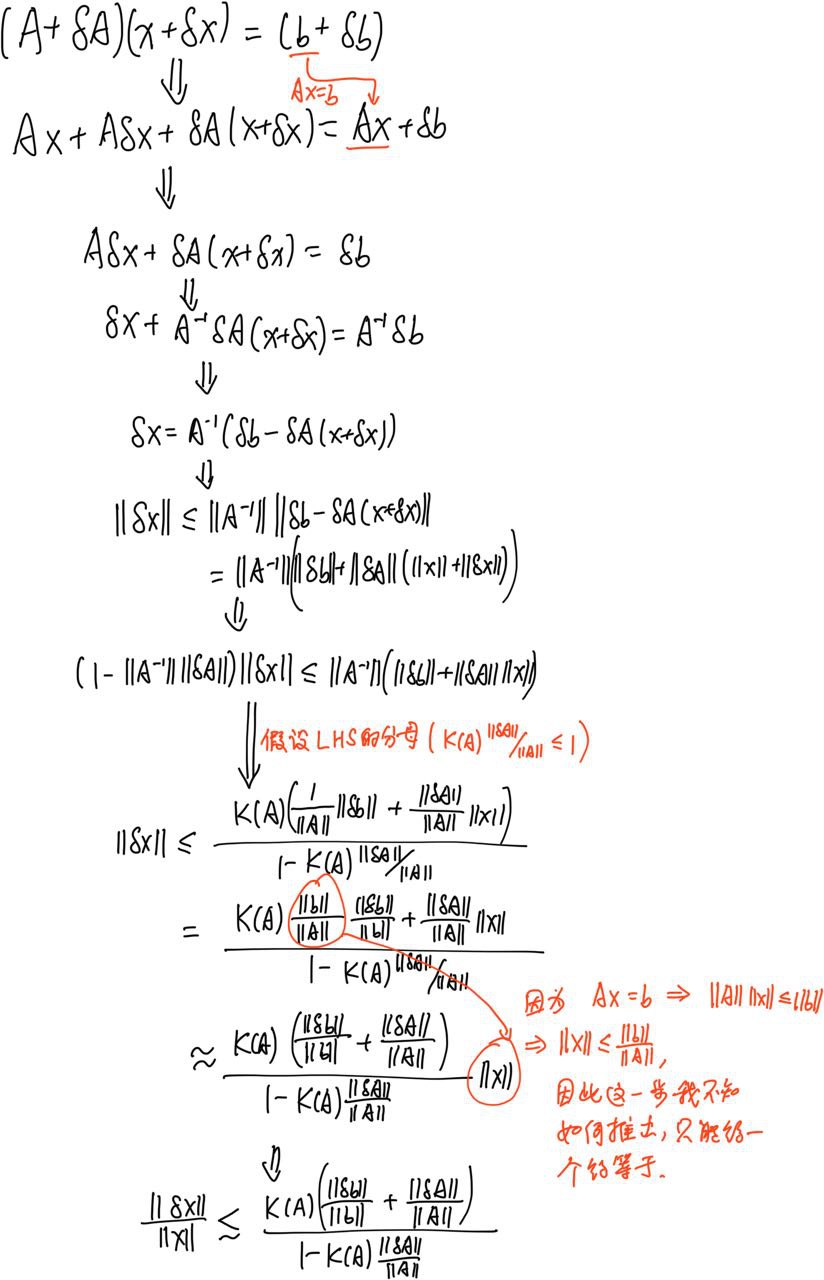 (A+δA)(x+δx) = (b+δb)
⇓ Ax=b
Ax + Aδx + δA(x+δx) = Ax + δb
⇓
Aδx + δA(x+δx) = δb
⇓
δx + A⁻¹δA(x+δx) = A⁻¹δb
⇓
δx = A⁻¹(δb − δA(x+δx))
⇓
||δx|| ≤ ||A⁻¹|| ||δb − δA(x+δx)||
= ||A⁻¹||(||δb||+||δA||(||x||+||δx||))
⇓
(1−||A⁻¹|| ||δA||)||δx|| ≤ ||A⁻¹||(||δb||+||δA|| ||x||)
⇓ 假设LHS的分母(K(A)||δA||/||A|| ≤ 1)
||δx|| ≤ K(A)(1/||A|| ||δb|| + ||δA||/||A|| ||x||) / 1−K(A)||δA||/||A||
= K(A) ||b||/||A|| ||δb||/||b|| + ||δA||/||A|| ||x|| / 1−K(A)||δA||/||A||
≈ K(A)(||δb||/||b|| + ||δA||/||A||) / 1−K(A)||δA||/||A|| ||x||
因为 Ax=b ⇒ ||A|| ||x|| ≤ ||b||
⇒ ||x|| ≤ ||b||/||A||,
因此这一步我不知
如何推出,只能给一
个约等于.
⇓
||δx||/||x|| ≲ K(A)(||δb||/||b|| + ||δA||/||A||) / 1−K(A)||δA||/||A||